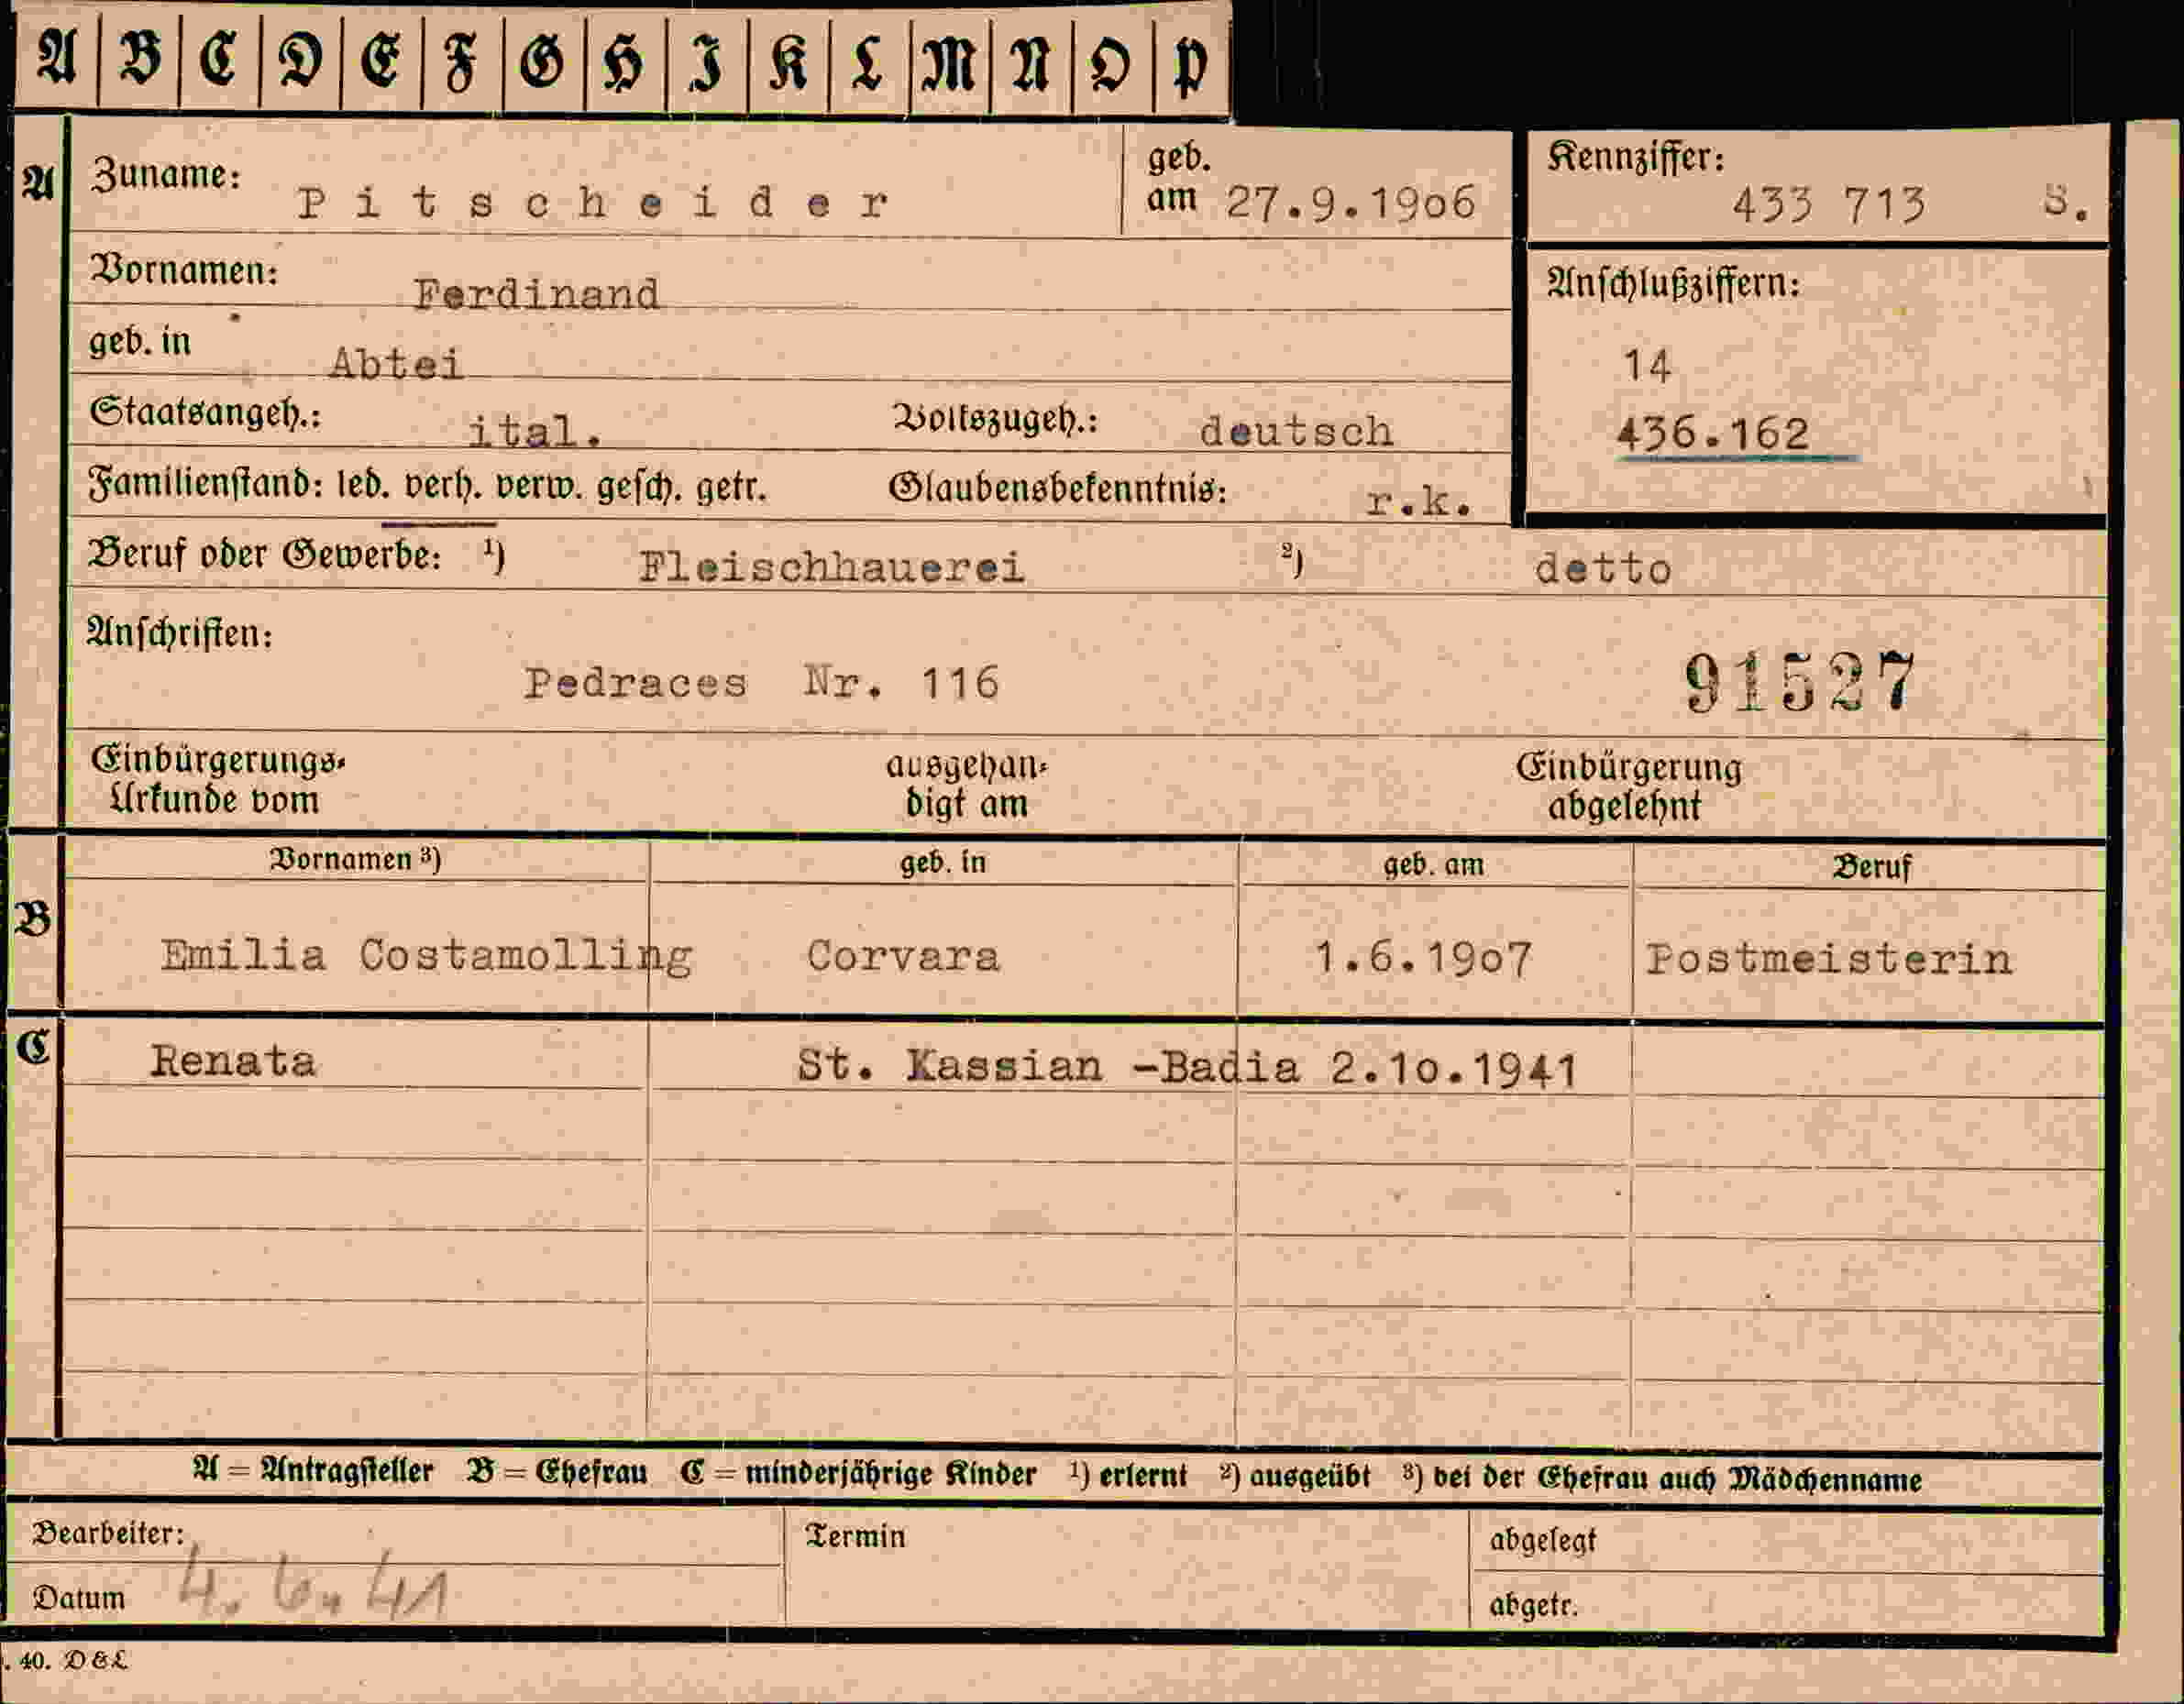 A B C D E F G H I K L M N O P
A Zuname: Pitscheider geb. am 27.9.19o6 Kennziffer: 433 713 S.
Vornamen: Ferdinand
Anschlußziffern:
geb. in Abtei
14
Staatsangeh.: ital. Volkszugeh.: deutsch
436.162
Familienstand: led. verh. verw. gesch. getr. Glaubensbekenntnis: r.k.
Beruf oder Gewerbe: ¹) Fleischhauerei ²) detto
Anschriften:
Pedraces Nr. 116 91527
Einbürgerungs-
Urkunde vom
ausgehän-
digt am
Einbürgerung
abgelehnt
B Vornamen ³) geb. in geb. am Beruf
Emilia Costamolling Corvara 1.6.19o7 Postmeisterin
C Renata St. Kassian -Badia 2.1o.1941
A = Antragsteller B = Ehefrau C = minderjährige Kinder ¹) erlernt ²) ausgeübt ³) bei der Ehefrau auch Mädchenname
Bearbeiter: Termin abgelegt
Datum 4. 6. 41 abgetr.
. 40. D&L